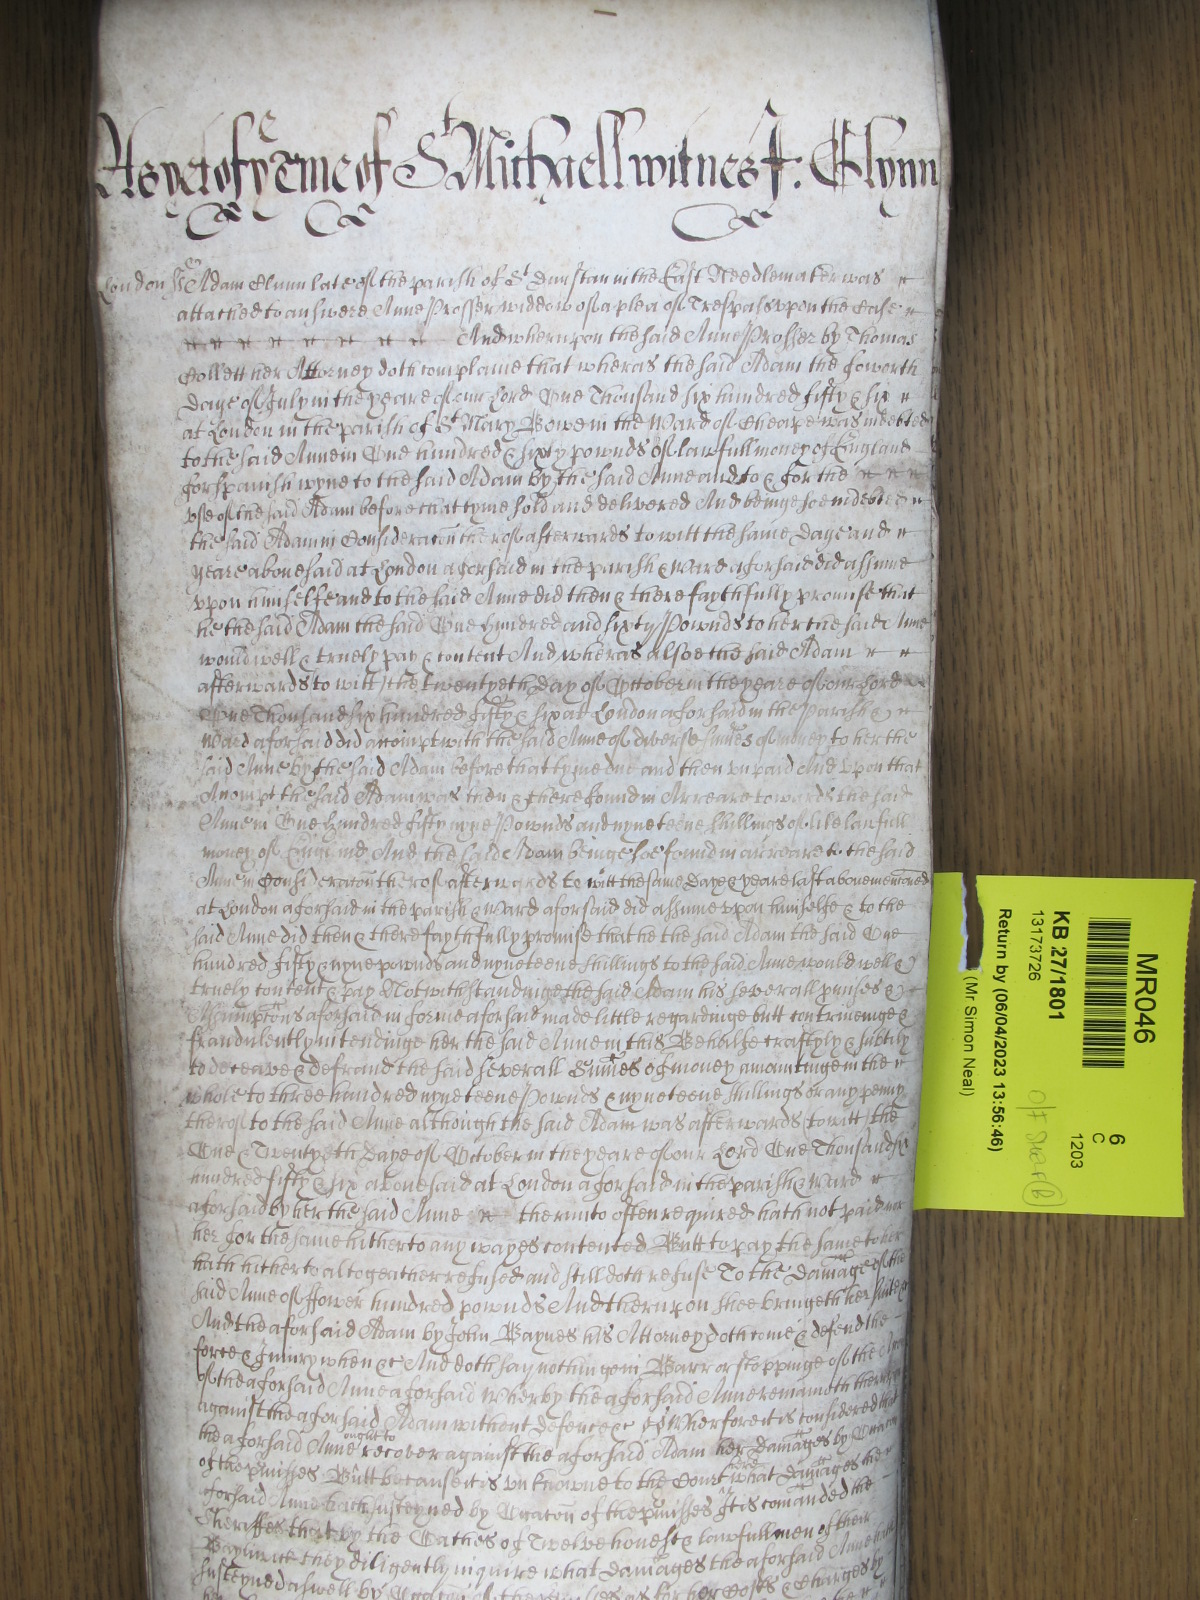 As yet of ye Tme of St Michaell witnes J: Glynn
London ss Adam Glunn late of the parish of St Dunstan in the East Needlemaker was
attached to answere Anne Prosser widdow of a plea of Trespass upon the Case
And whereupon the said Anne Prosser by Thomas
Collett her Attorney doth complaine that wheras the said Adam the fowerth
Daye of July in the yeare of our Lord One Thousand six hundred fifty & six
at London in the parish of St Mary Bowe in the Ward of Cheape was indebted
to the said Anne in One hundred & sixty pownds of lawfull money of England
for spanish wyne to the said Adam by the said Anne and to & for the
use of the said Adam before that tyme sold and delivered And beinge soe indebted
the said Adam in Consideracon therof afterwards to witt the same Daye and
yeare abovesaid at London aforsaid in the parish & Ward aforsaid did assume
upon himselfe and to the said Anne did then & there faythfully promise that
he the said Adam the said One hundred and sixty Pownds to her the said Anne
would well & truely pay & content And wheras alsoe the said Adam
afterwards to witt the twentyeth Day of October in the yeare of our Lord
One Thousand six hundred fifty & six at London aforsaid in the parish &
Ward aforsaid did accompt with the said Anne of diverse sumes of money to her the
said Anne by the said Adam before that tyme due and then unpaid And upon that
Accompt the said Adam was then & there found in Arreare towards the said
Anne in One hundred fifty nyne Pownds and nyneteene shillings of like lawfull
money of England And the said Adam beinge soe found in arreare to the said
Anne in Consideracon therof afterwards to witt the same Daye & yeare last abovemenconed
at London aforsaid in the parish & Ward aforsaid did assume upon himselfe & to the
said Anne did then & there faythfully promise that he the said Adam the said One
hundred fifty & nyne pownds and nyneteene shillings to the said Anne would well &
truely content & pay Notwithstandinge the said Adam his severall pmises &
Assumptons aforsaid in forme aforsaid made little regardinge butt contriveinge &
fraudulently intendinge her the said Anne in this Behalfe craftyly & subtily
to deceave & defraud the said severall Sumes of money amountinge in the
whole to three hundred nyneteene Pownds & nyneteene shillings or any penny
therof to the said Anne although the said Adam was afterwards to witt the
One & Twentyeth Daye of October in the yeare of our Lord One Thousand six
hundred fifty & six abovesaid at London aforsaid in the parish & Ward
aforsaid by her the said Anne therunto often required hath not paid nor
her for the same hitherto any wayes contented Butt to pay the same to her
hath hitherto altogeather refused and still doth refuse To the Damage of the
said Anne of ffower hundred pownds And therupon shee bringeth her suite &c
And the aforsaid Adam by John Baynes his Attorney doth come & defend the
force & Injury when &c And doth say nothinge in Barr or stoppinge of the
of the aforsaid Anne aforsaid Wherby the aforsaid Anne remaineth therupon
against the aforsaid Adam without defence &c Wherfore it is considered that
the aforsaid Anne ought to recover against the aforsaid Adam her Damages by Occacon
of the pmisses Butt because it is unknowne to the Court here what Damages the
aforsaid Anne hath susteyned by Occacon of the pmisses It is comanded the
Sheriffes that by the Oathes of Twelve honest & lawfull men of their
Baylywicke they diligently inquire what Damages the aforsaid Anne hath
susteyned aswell by Occacon of the pmisses as for her Costs & Charges by
MR046
6
C
1203
KB 27/1801
13173726
Return by (06/04/2023 13:56:46)
(Mr Simon Neal)